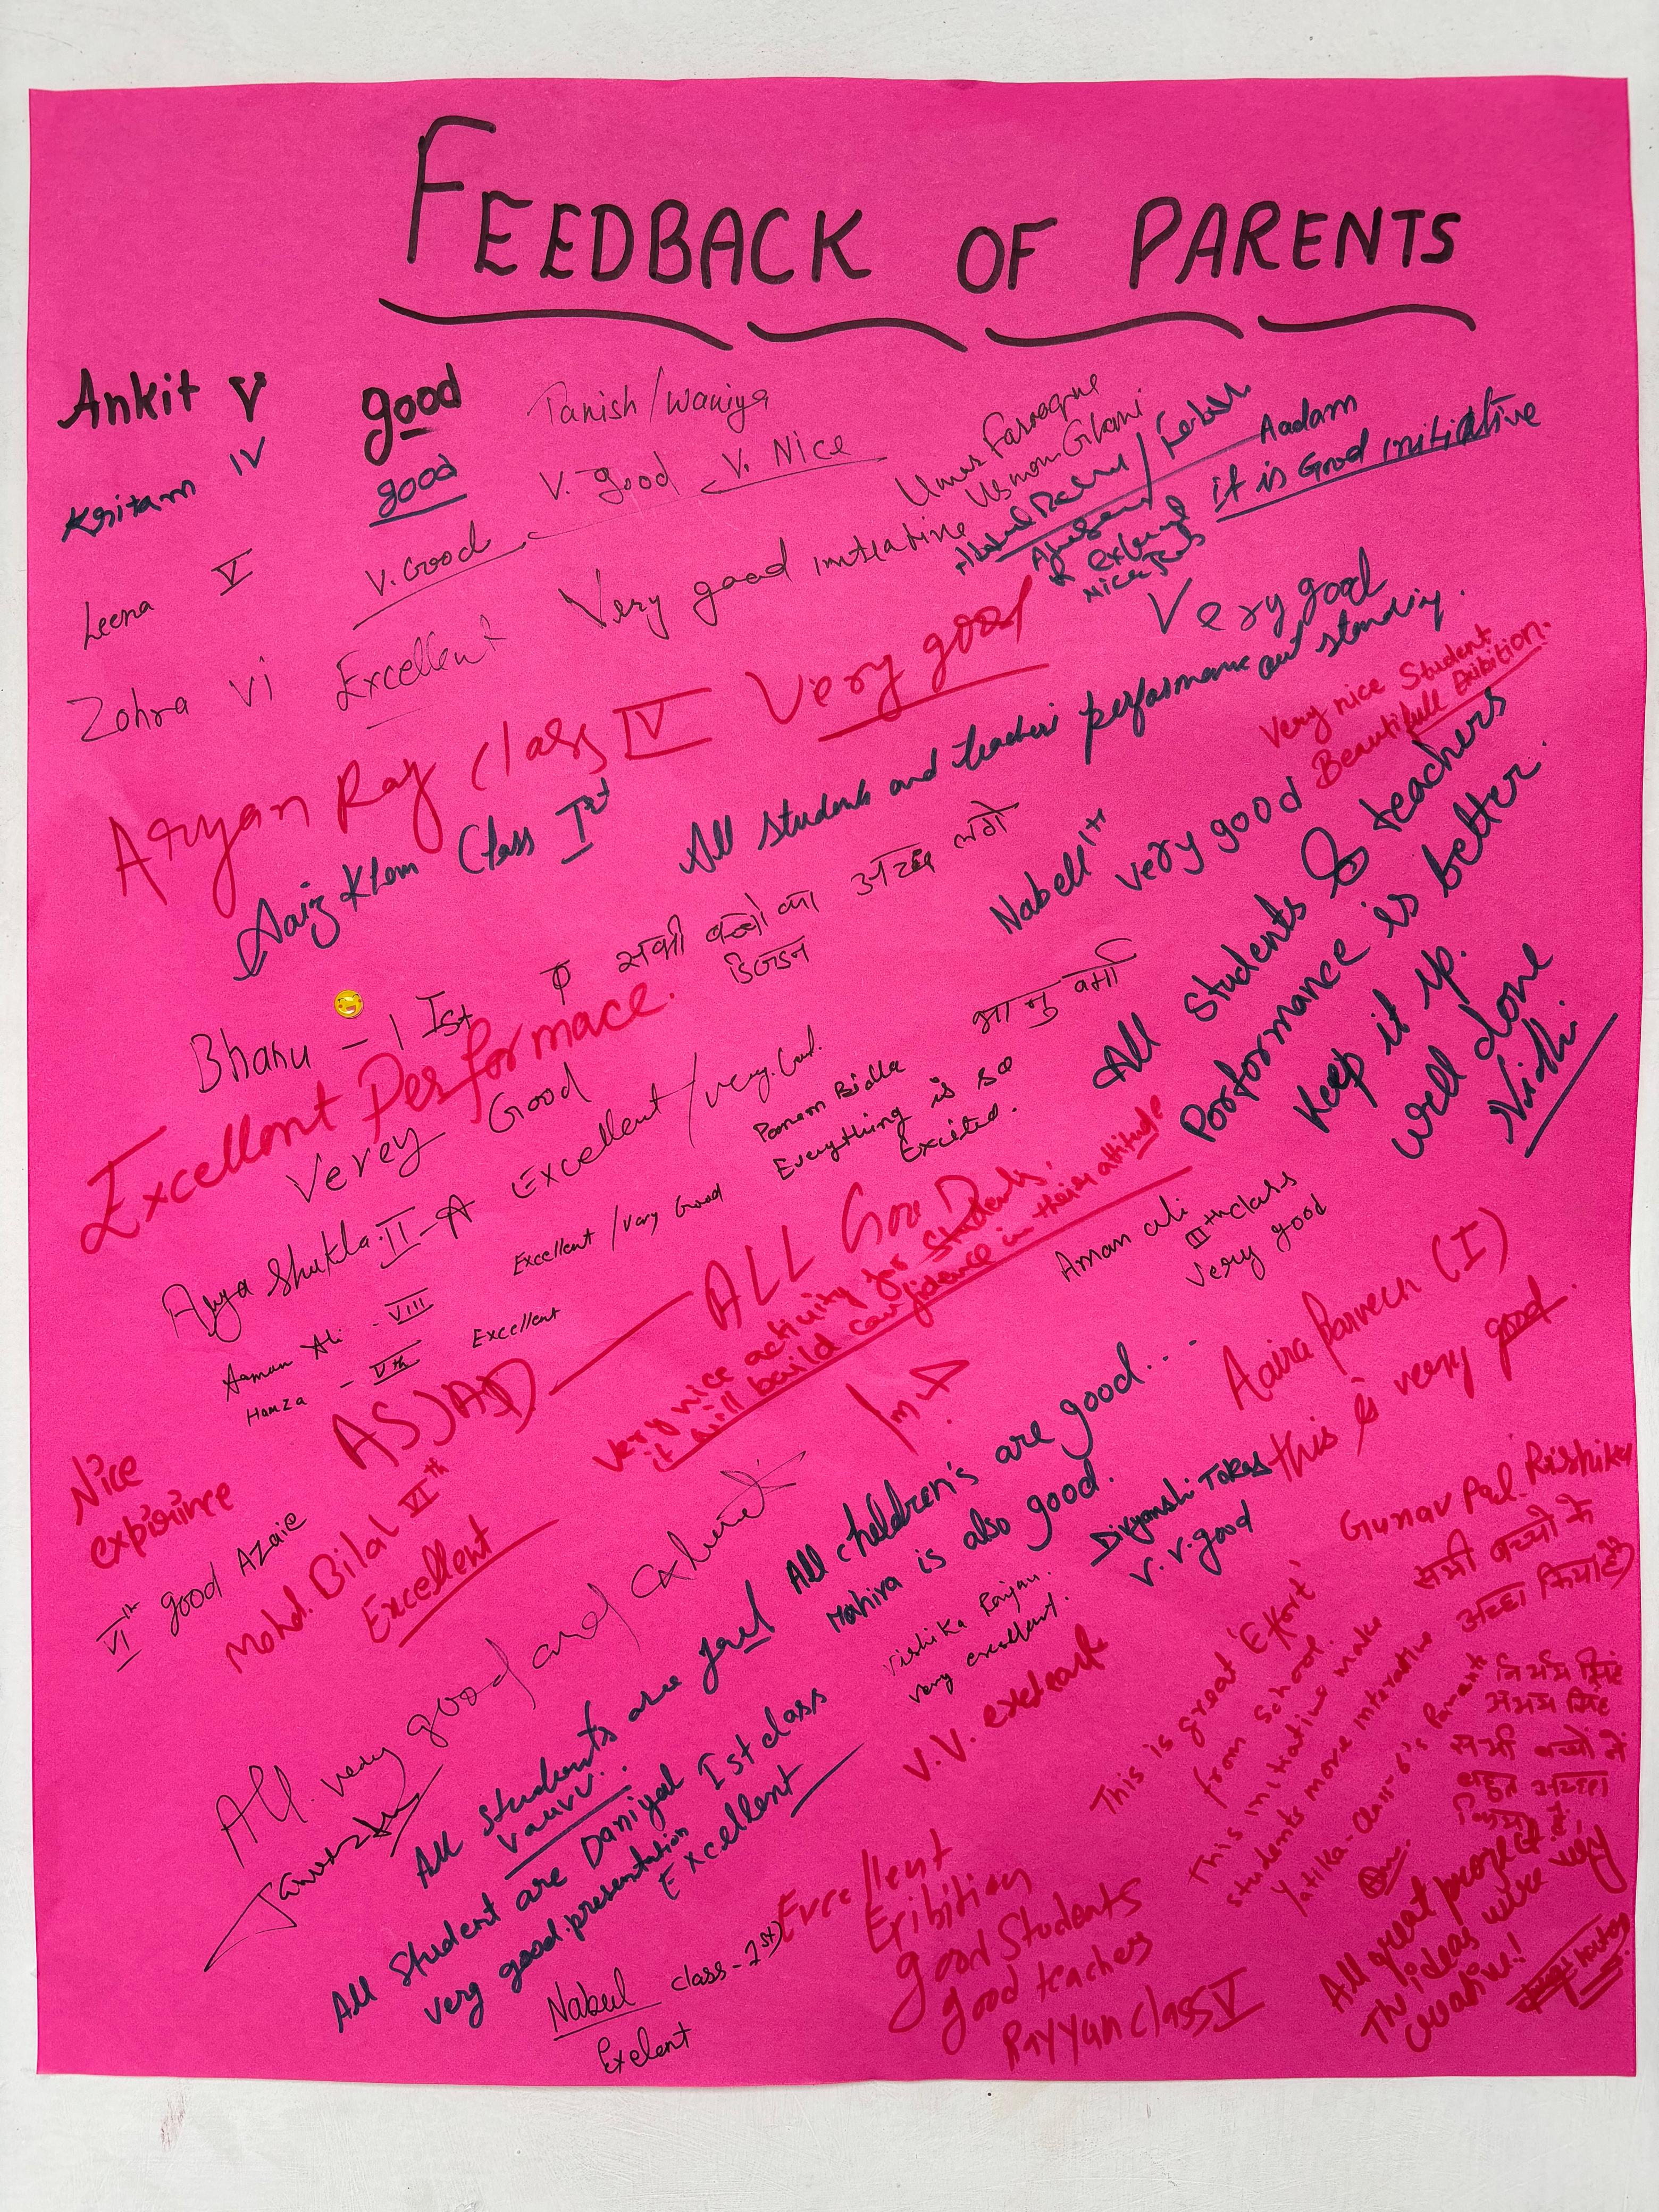 FEEDBACK OF PARENTS
Ankit V good
Tanish/Waniya
Kritam IV good
V. good V. Nice
Umer Farooque
Usman Gilani
Aadam
it is Good initiative
Leena V V. Good
Very good
Zohra VI Excellent
Very good
Aryan Ray Class IV Very good
Class Ist
All students and teachers performance out standing.
Very nice Student
Beautifull Exibition.
Bhanu - 1 Ist
सभी बच्चो का अच्छा लगे
भानु वर्मा
Nabell 1st
very good
All Students & teachers
Performance is better.
Keep it up.
Well done
Nidhi
Excellent Performace.
Verey Good
Arya Shukla. II-A Excellent/very. Good.
Everything is so
Excited.
Aaman Ali - VIII Excellent/very Good
Hamza - Vth Excellent
ASJAD ALL Good
Very nice activity for students.
it will build confidence in their attitude
Aman ali
IIIth class
very good
Aaira Parveen (I)
this is very good.
Nice
expirince
VIth good Azaie
Mohd. Bilal VIth
Excellent
All very good and
All children's are good....
Mahira is also good.
Divyanshi Tokas
V.V. good
very excellent.
Gunav Pal. Rishika
सभी बच्चो ने
अच्छा किया है
All students are good
All Student are Daniyal Ist class
very good. presentation
Excellent
This is great 'Effort'
from School.
This initiative make
students more interative
Yatika-Class-6's Parents
सभी बच्चों ने
बहुत अच्छा
किया है।
Nabeel class-1st
Exelent
Excellent
Exibition
good Students
good teaches
Rayyan class V
All great
The ideas were very